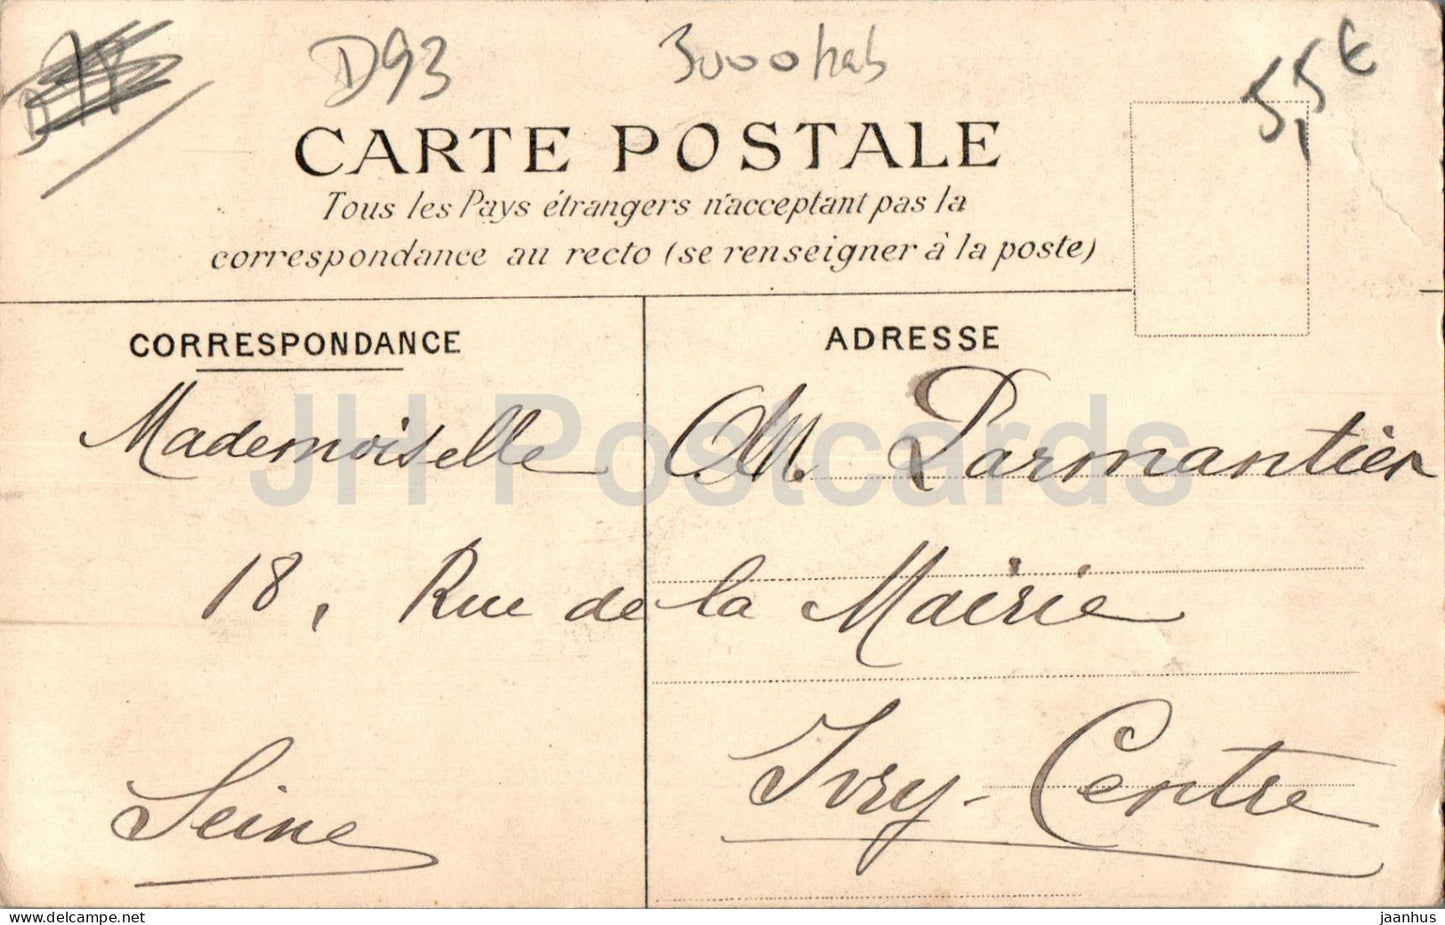 D93 3000 hab 5,5€
CARTE POSTALE
Tous les Pays étrangers n'acceptant pas la
correspondance au recto (se renseigner à la poste)
CORRESPONDANCE ADRESSE
Mademoiselle M. Parmantier
18, Rue de la Mairie
Ivry-Centre
Seine
JH Postcards
delcampe.net
jaanhus